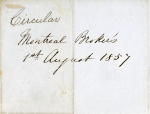 Circular
Montreal Brokers
1st August 1857